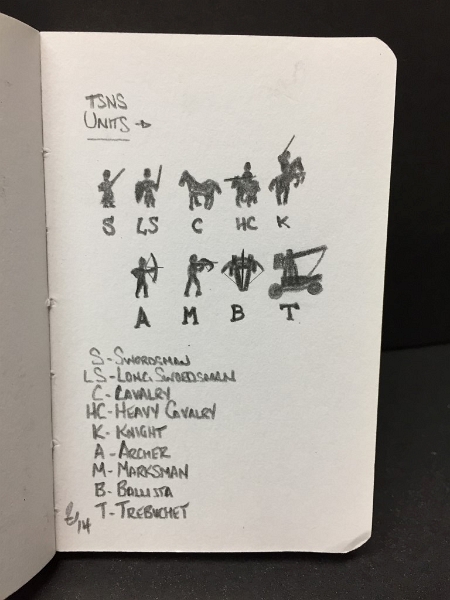 TSNS
UNITS →
S LS C HC K
A M B T
S - SWORDSMAN
LS - LONG SWORDSMAN
C - CAVALRY
HC - HEAVY CAVALRY
K - KNIGHT
A - ARCHER
M - MARKSMAN
B - BALLISTA
T - TREBUCHET